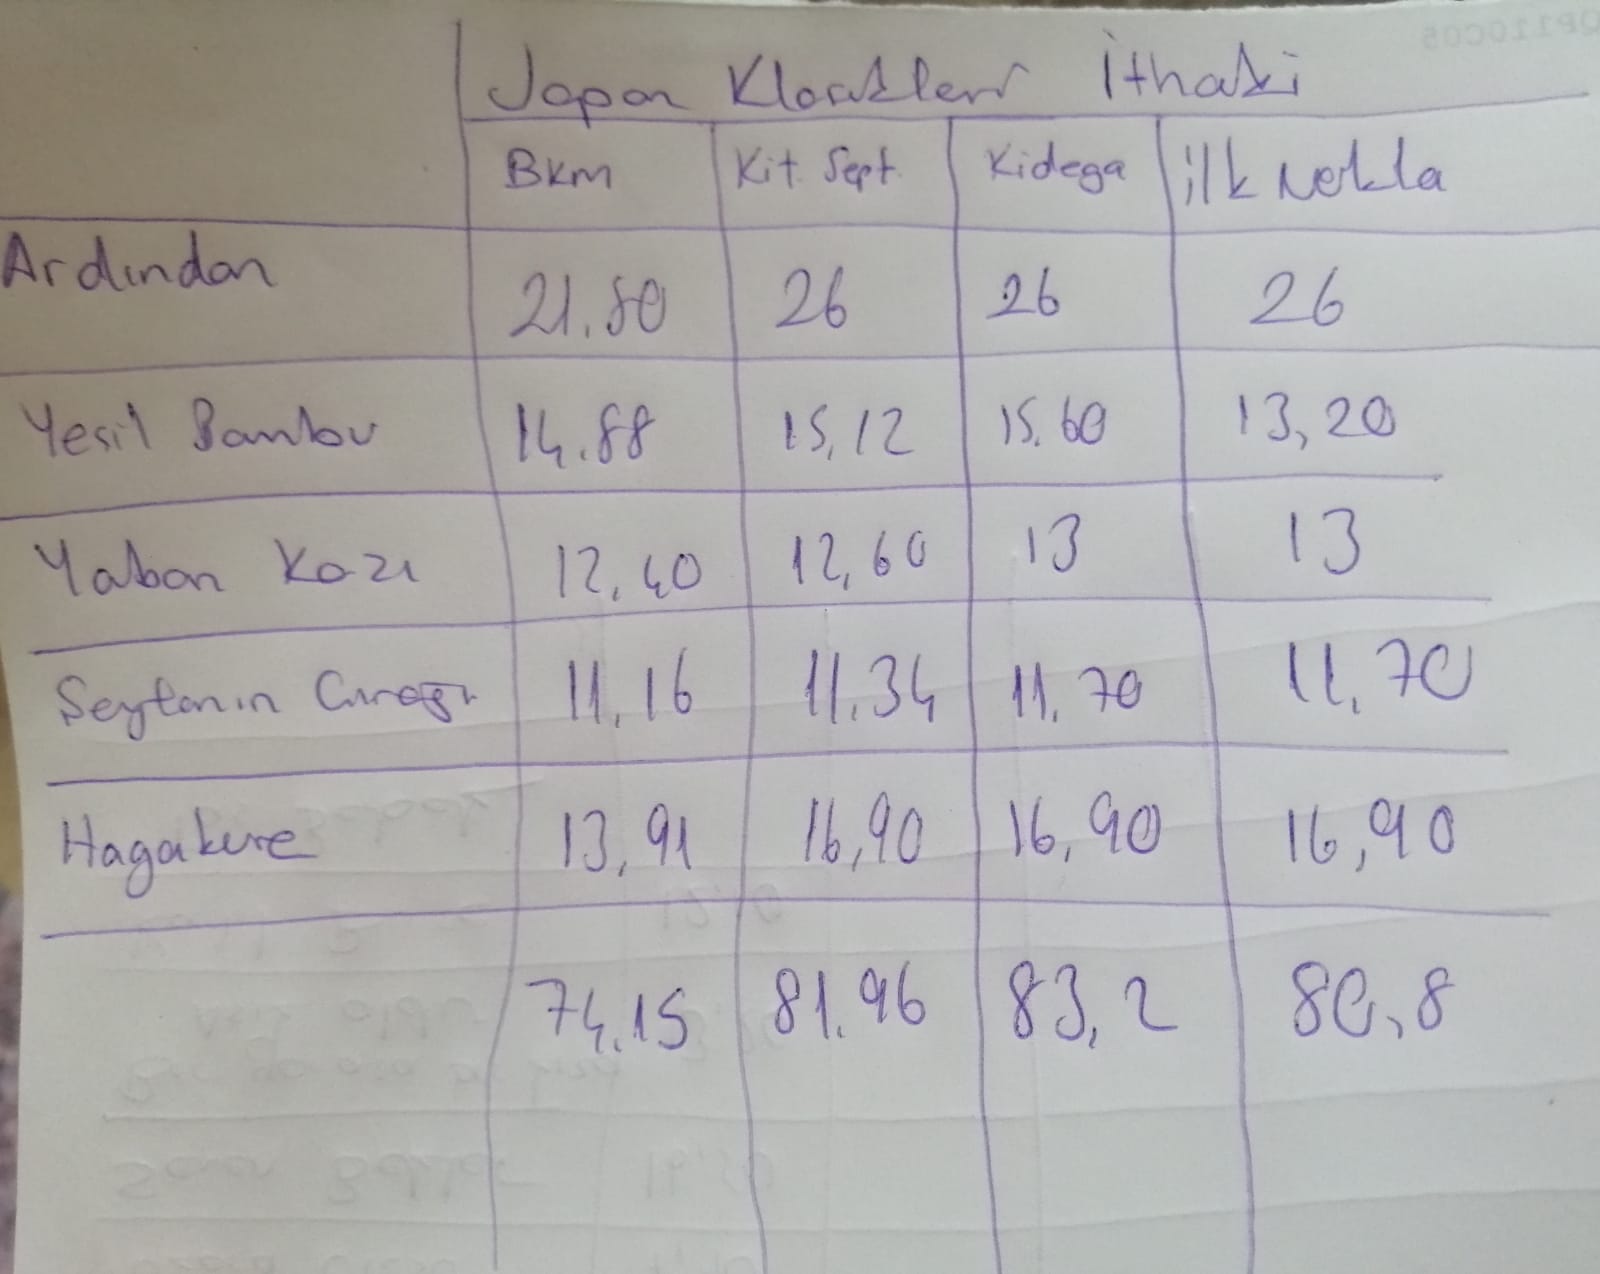 Japon Klasikleri İthaki
Bkm Kit. Sept. Kidega ilknokta
Ardından 21.80 26 26 26
Yeşil Bambu 14.88 15,12 15.60 13,20
Yaban Kazı 12,40 12,60 13 13
Şeytanın Çırağı 11,16 11.34 11.70 11,70
Hagakure 13,91 16,90 16,90 16,90
74.15 81.96 83,2 80,8